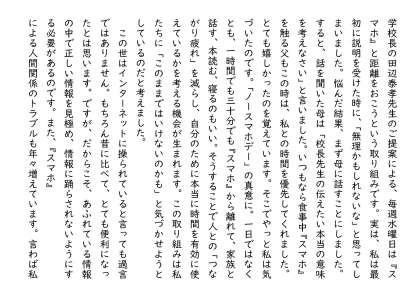 学校長の田辺泰孝先生のご提案による、毎週水曜日は『ス
マホ』と距離をおこうという取り組みです。実は、私は最
初に説明を受けた時に、「無理かもしれないな」と思ってし
まいました。悩んだ結果、まず母に話すことにしました。
すると、話を聞いた母は「校長先生の伝えたい本当の意味
を考えなさい」と言いました。いつもなら食事中『スマホ』
を触る父もこの時は、私との時間を優先してくれました。
とても嬉しかったのを覚えています。そこでやっと私は気
づいたのです。「ノースマホデー」の真意に。一日ではなく
とも、一時間でも三十分でも『スマホ』から離れて、家族と
話す、本読む、寝るのもいい。そうすることで人との「つな
がり疲れ」を減らし、自分のために本当に時間を有効に使
えているかを考える機会が生まれます。この取り組みは私
たちに「このままではいけないのかも」と気づかせようと
しているのだと考えました。
この世はインターネットに操られていると言っても過言
ではありません。もちろん昔に比べて、とても便利になっ
たとは思います。ですが、だからこそ、あふれている情報
の中で正しい情報を見極め、情報に踊らされないようにす
る必要があるのです。また、『スマホ』
による人間関係のトラブルも年々増えています。言わば私